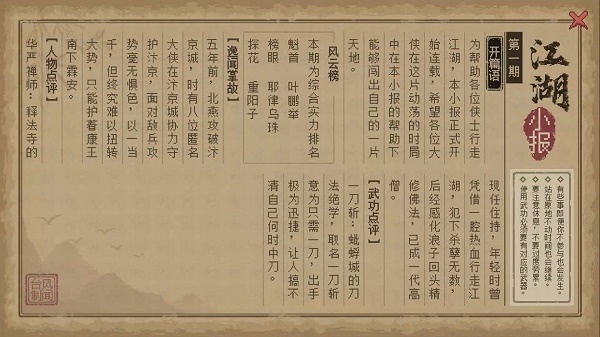 江湖
小报
第一期
开篇语
为帮助各位侠士行走
江湖，本小报正式开
始连载，希望各位大
侠在这片动荡的时局
中在本小报的帮助下
能够闯出自己的一片
天地。
风云榜
本期为综合实力排名
魁首 叶鹏举
榜眼 耶律乌珠
探花 重阳子
【逸闻掌故】
五年前，北燕攻破汴
京城，时有八位匿名
大侠在汴京城协力守
护汴京，面对敌兵攻
势毫无惧色，以一当
千，但终究难以扭转
大势，只能护着康王
南下霖安。
【人物点评】
华严禅师：释法寺的
现任住持，年轻时曾
凭借一腔热血行走江
湖，犯下杀孽无数，
后经感化浪子回头精
修佛法，已成一代高
僧。
【武功点评】
一刀斩：蚍蜉城的刀
法绝学，取名一刀斩
意为只需一刀，出手
极为迅捷，让人搞不
清自己何时中刀。
◇有些事即便你不参与也会发生。
◇站在原地不动时间也会继续。
◇要注意休息，不要过度劳累。
◇使用武功必须要有对应的武器。
风闻
台制